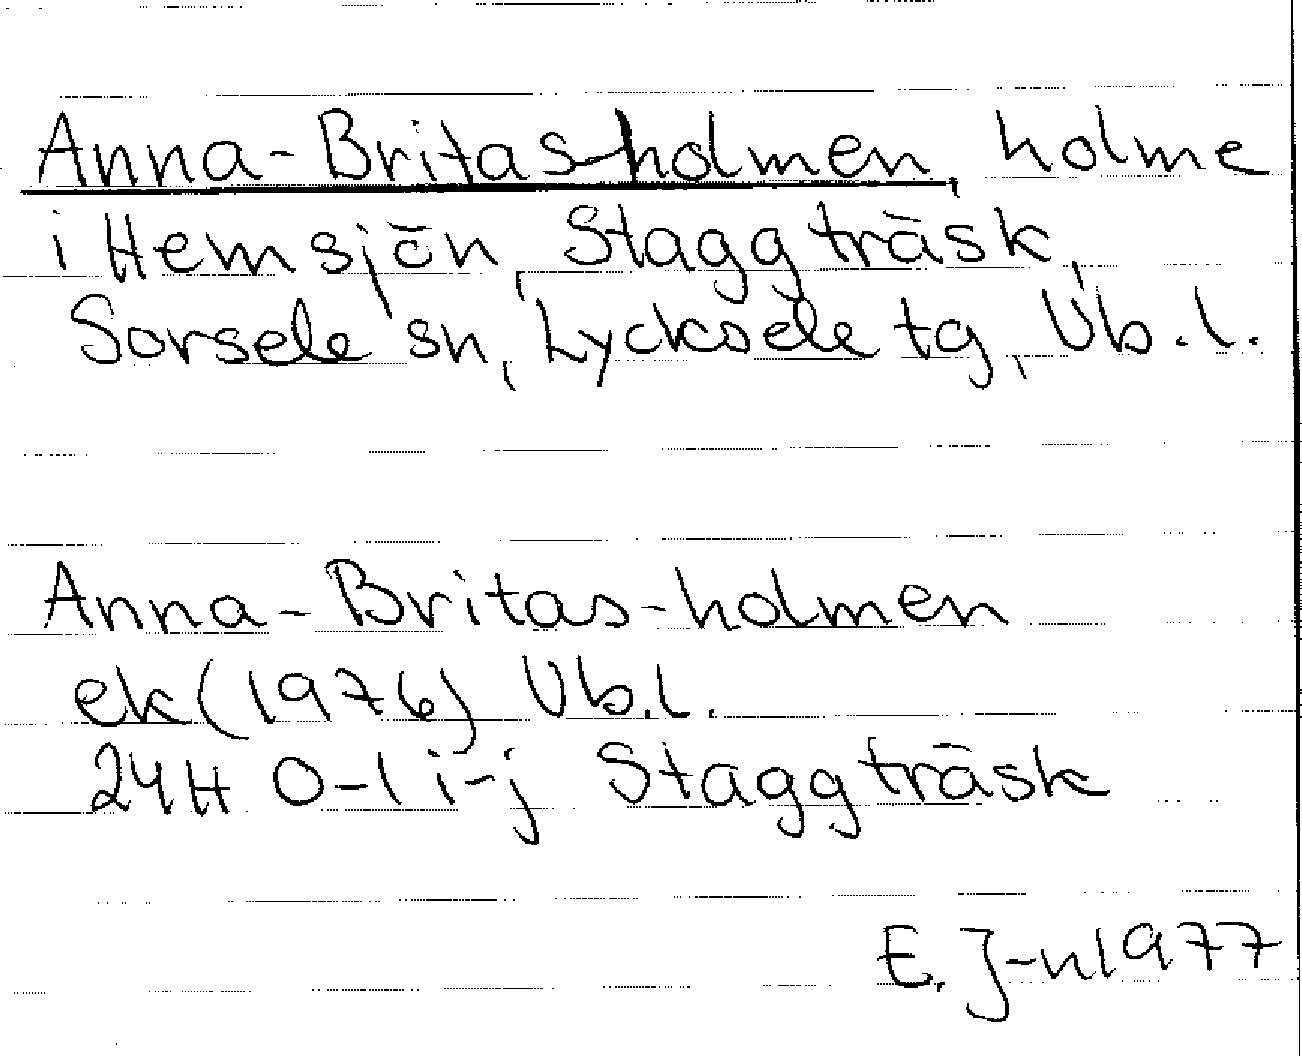 Anna-Britas-holmen, holme
i Hemsjön, Staggträsk,
Sorsele sn, Lycksele tg, Vb.l.
Anna-Britas-holmen
ek (1976) Vb.l.
24H 0-1 i-j Staggträsk
E. J-n 1977